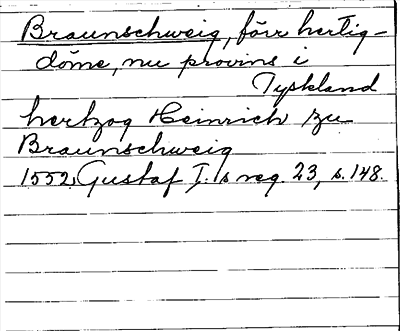 Braunschweig, förr hertig-
döme, nu provins i
Tyskland
hertzog Heinrich zu
Braunschweig
1552. Gustaf I:s reg. 23, s. 148.